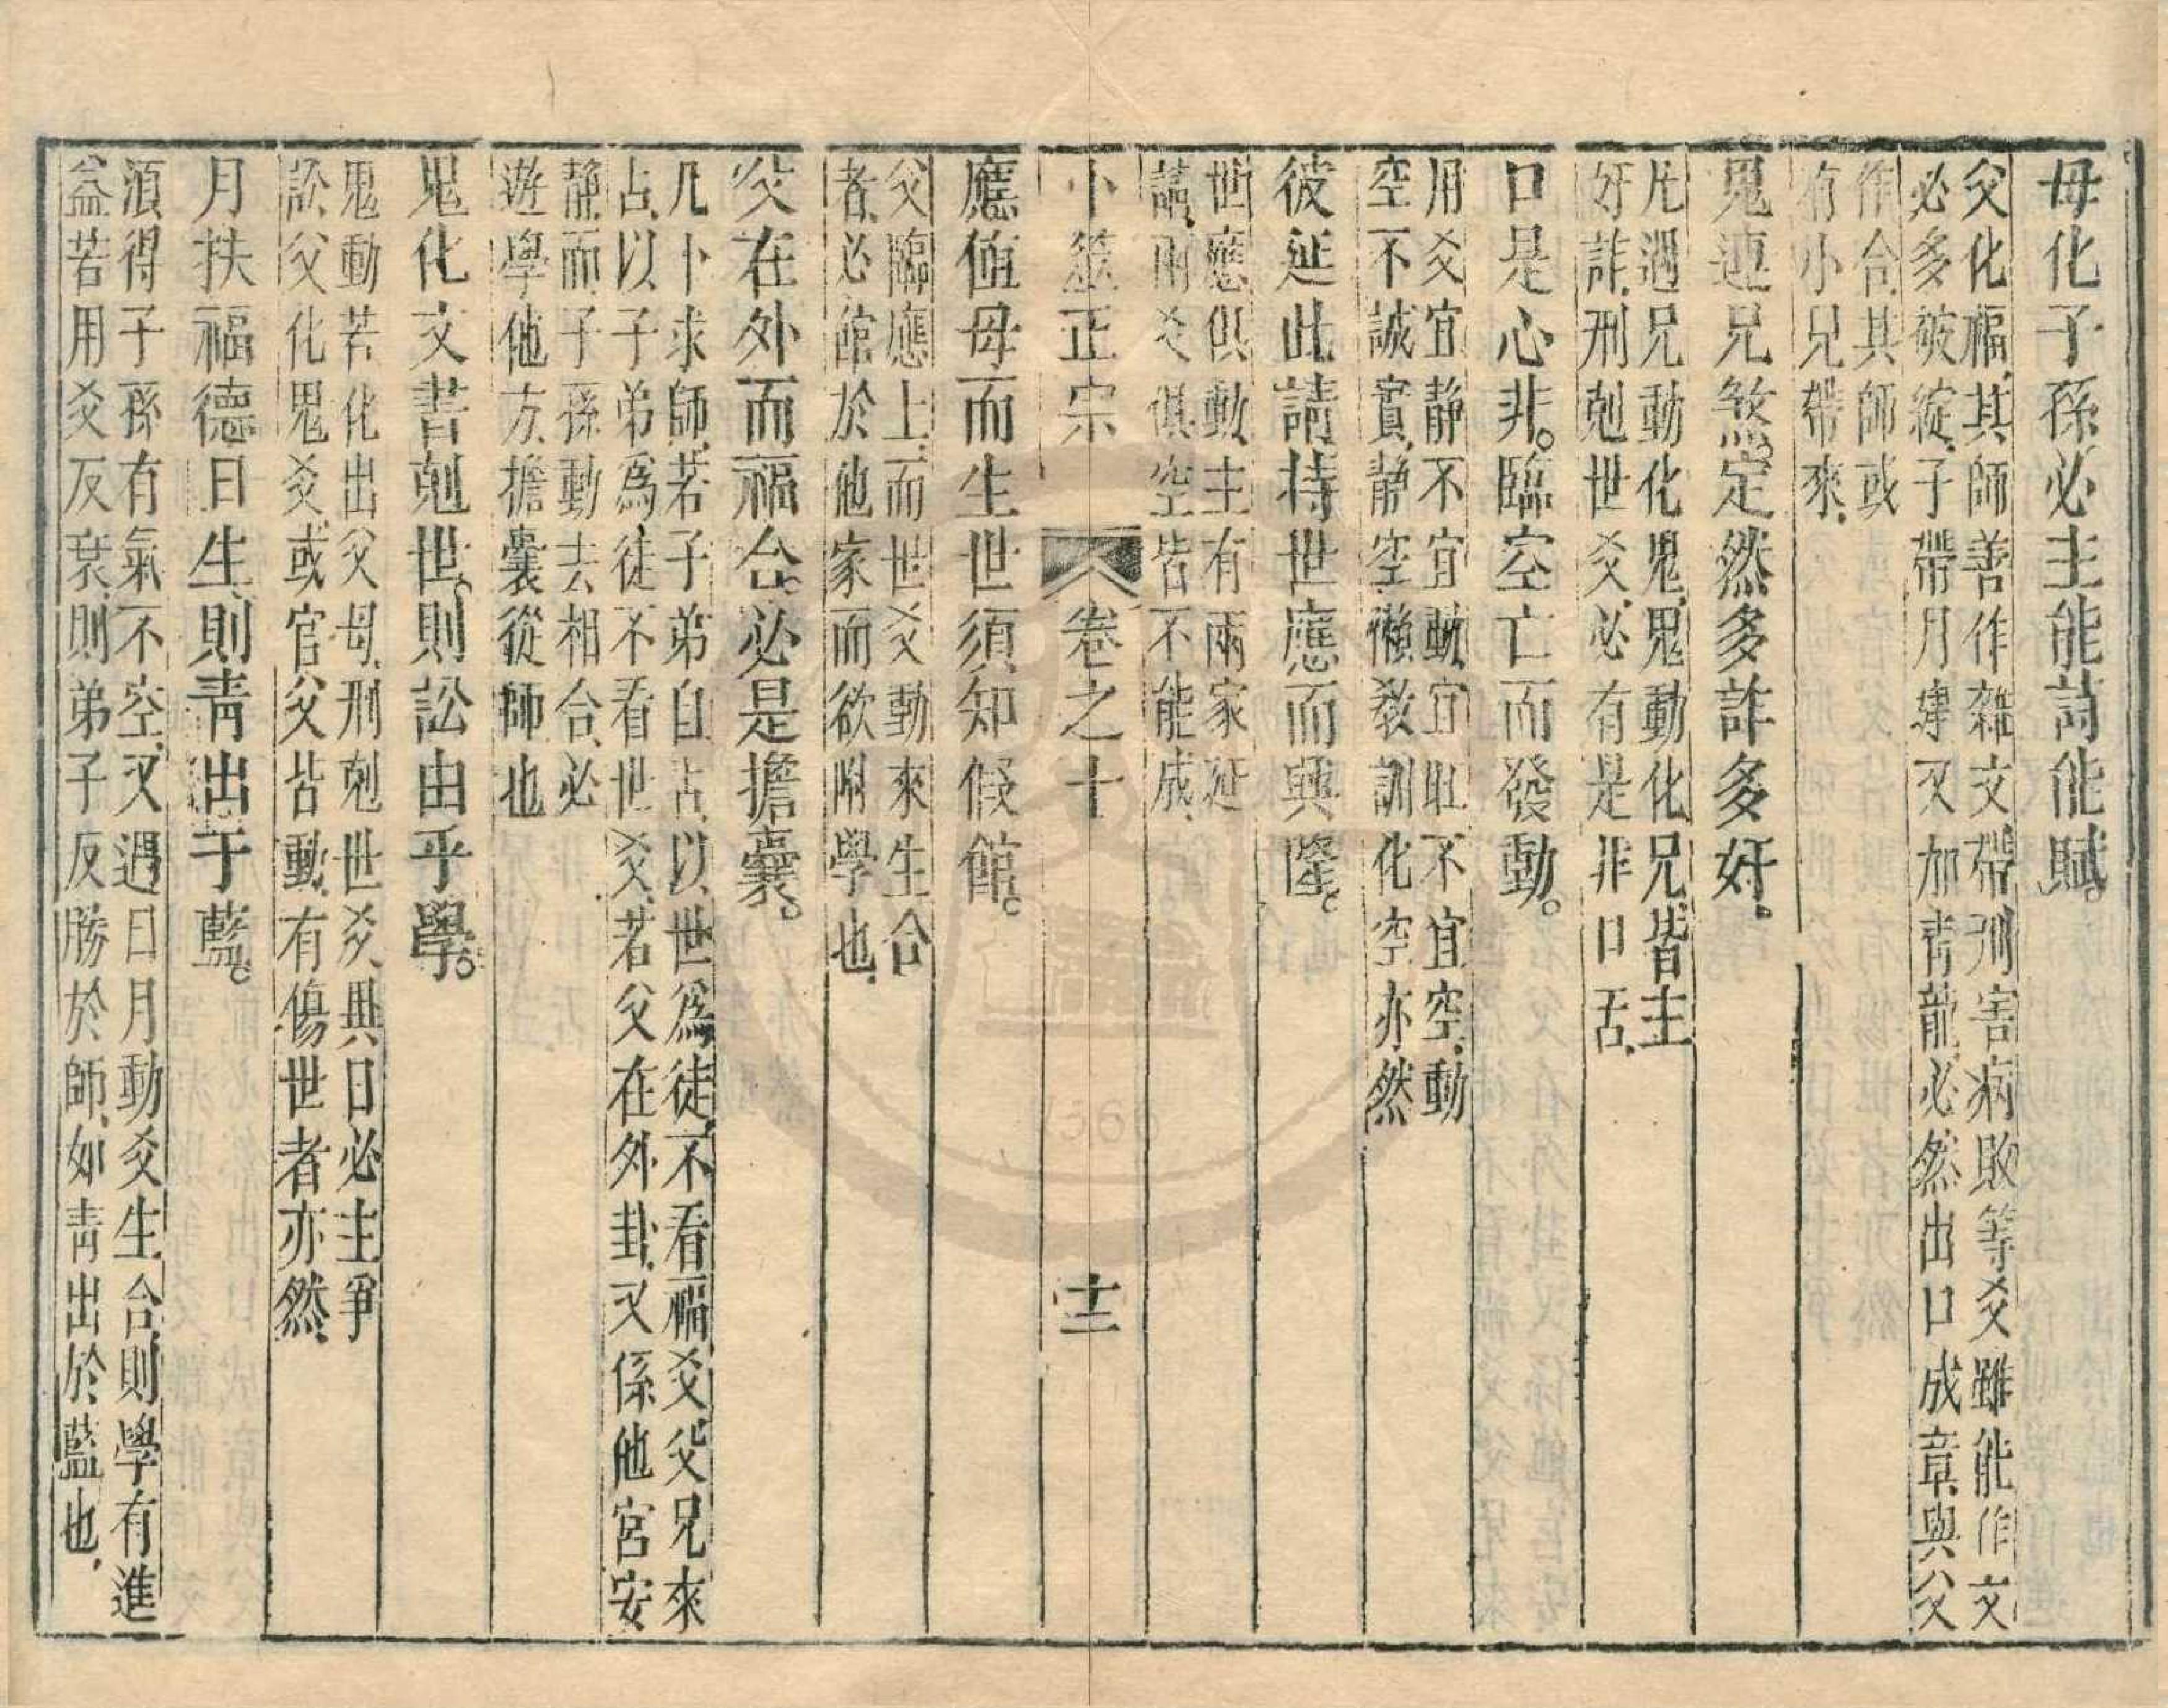 母化子孫必主能詩能賦。
父化福、其師善作雜文、帶刑害病敗等爻、雖能作文
必多破綻、子帶月建又加青龍、必然出口成章、與父
作合、其師或
有小兒帶來、
鬼連兄煞。定然多詐多奸。
凡遇兄動化鬼、鬼動化兄、皆主
奸詐、刑尅世爻、必有是非口舌、
口是心非。臨空亡而發動。
用爻宜靜不宜動、宜旺不宜空、動
空不誠實、靜空懶教訓、化空亦然
彼延此請持世應而興隆。
世應俱動、主有兩家延
請、兩爻俱空皆不能成、
卜筮正宗 卷之十 十二
應值母而生世須知假館。
父臨應上、而世爻動來生合
者、必館於他家而欲附學也、
父在外而福合。必是擔囊。
凡卜求師、若子弟自占、以世為徒、不看福爻、父兄來
占、以子弟為徒、不看世爻、若父在外卦、又係他宮安
靜、而子孫動去相合、必
遊學他方、擔囊從師也
鬼化文書尅世。則訟由乎學。
鬼動若化出父母、刑尅世爻與日必主爭
訟、父化鬼爻或官父皆動、有傷世者亦然、
月扶福德日生、則青出于藍。
須得子孫有氣不空、又遇日月動爻生合、則學有進
益若用爻反衰、則弟子反勝於師、如青出於藍也、